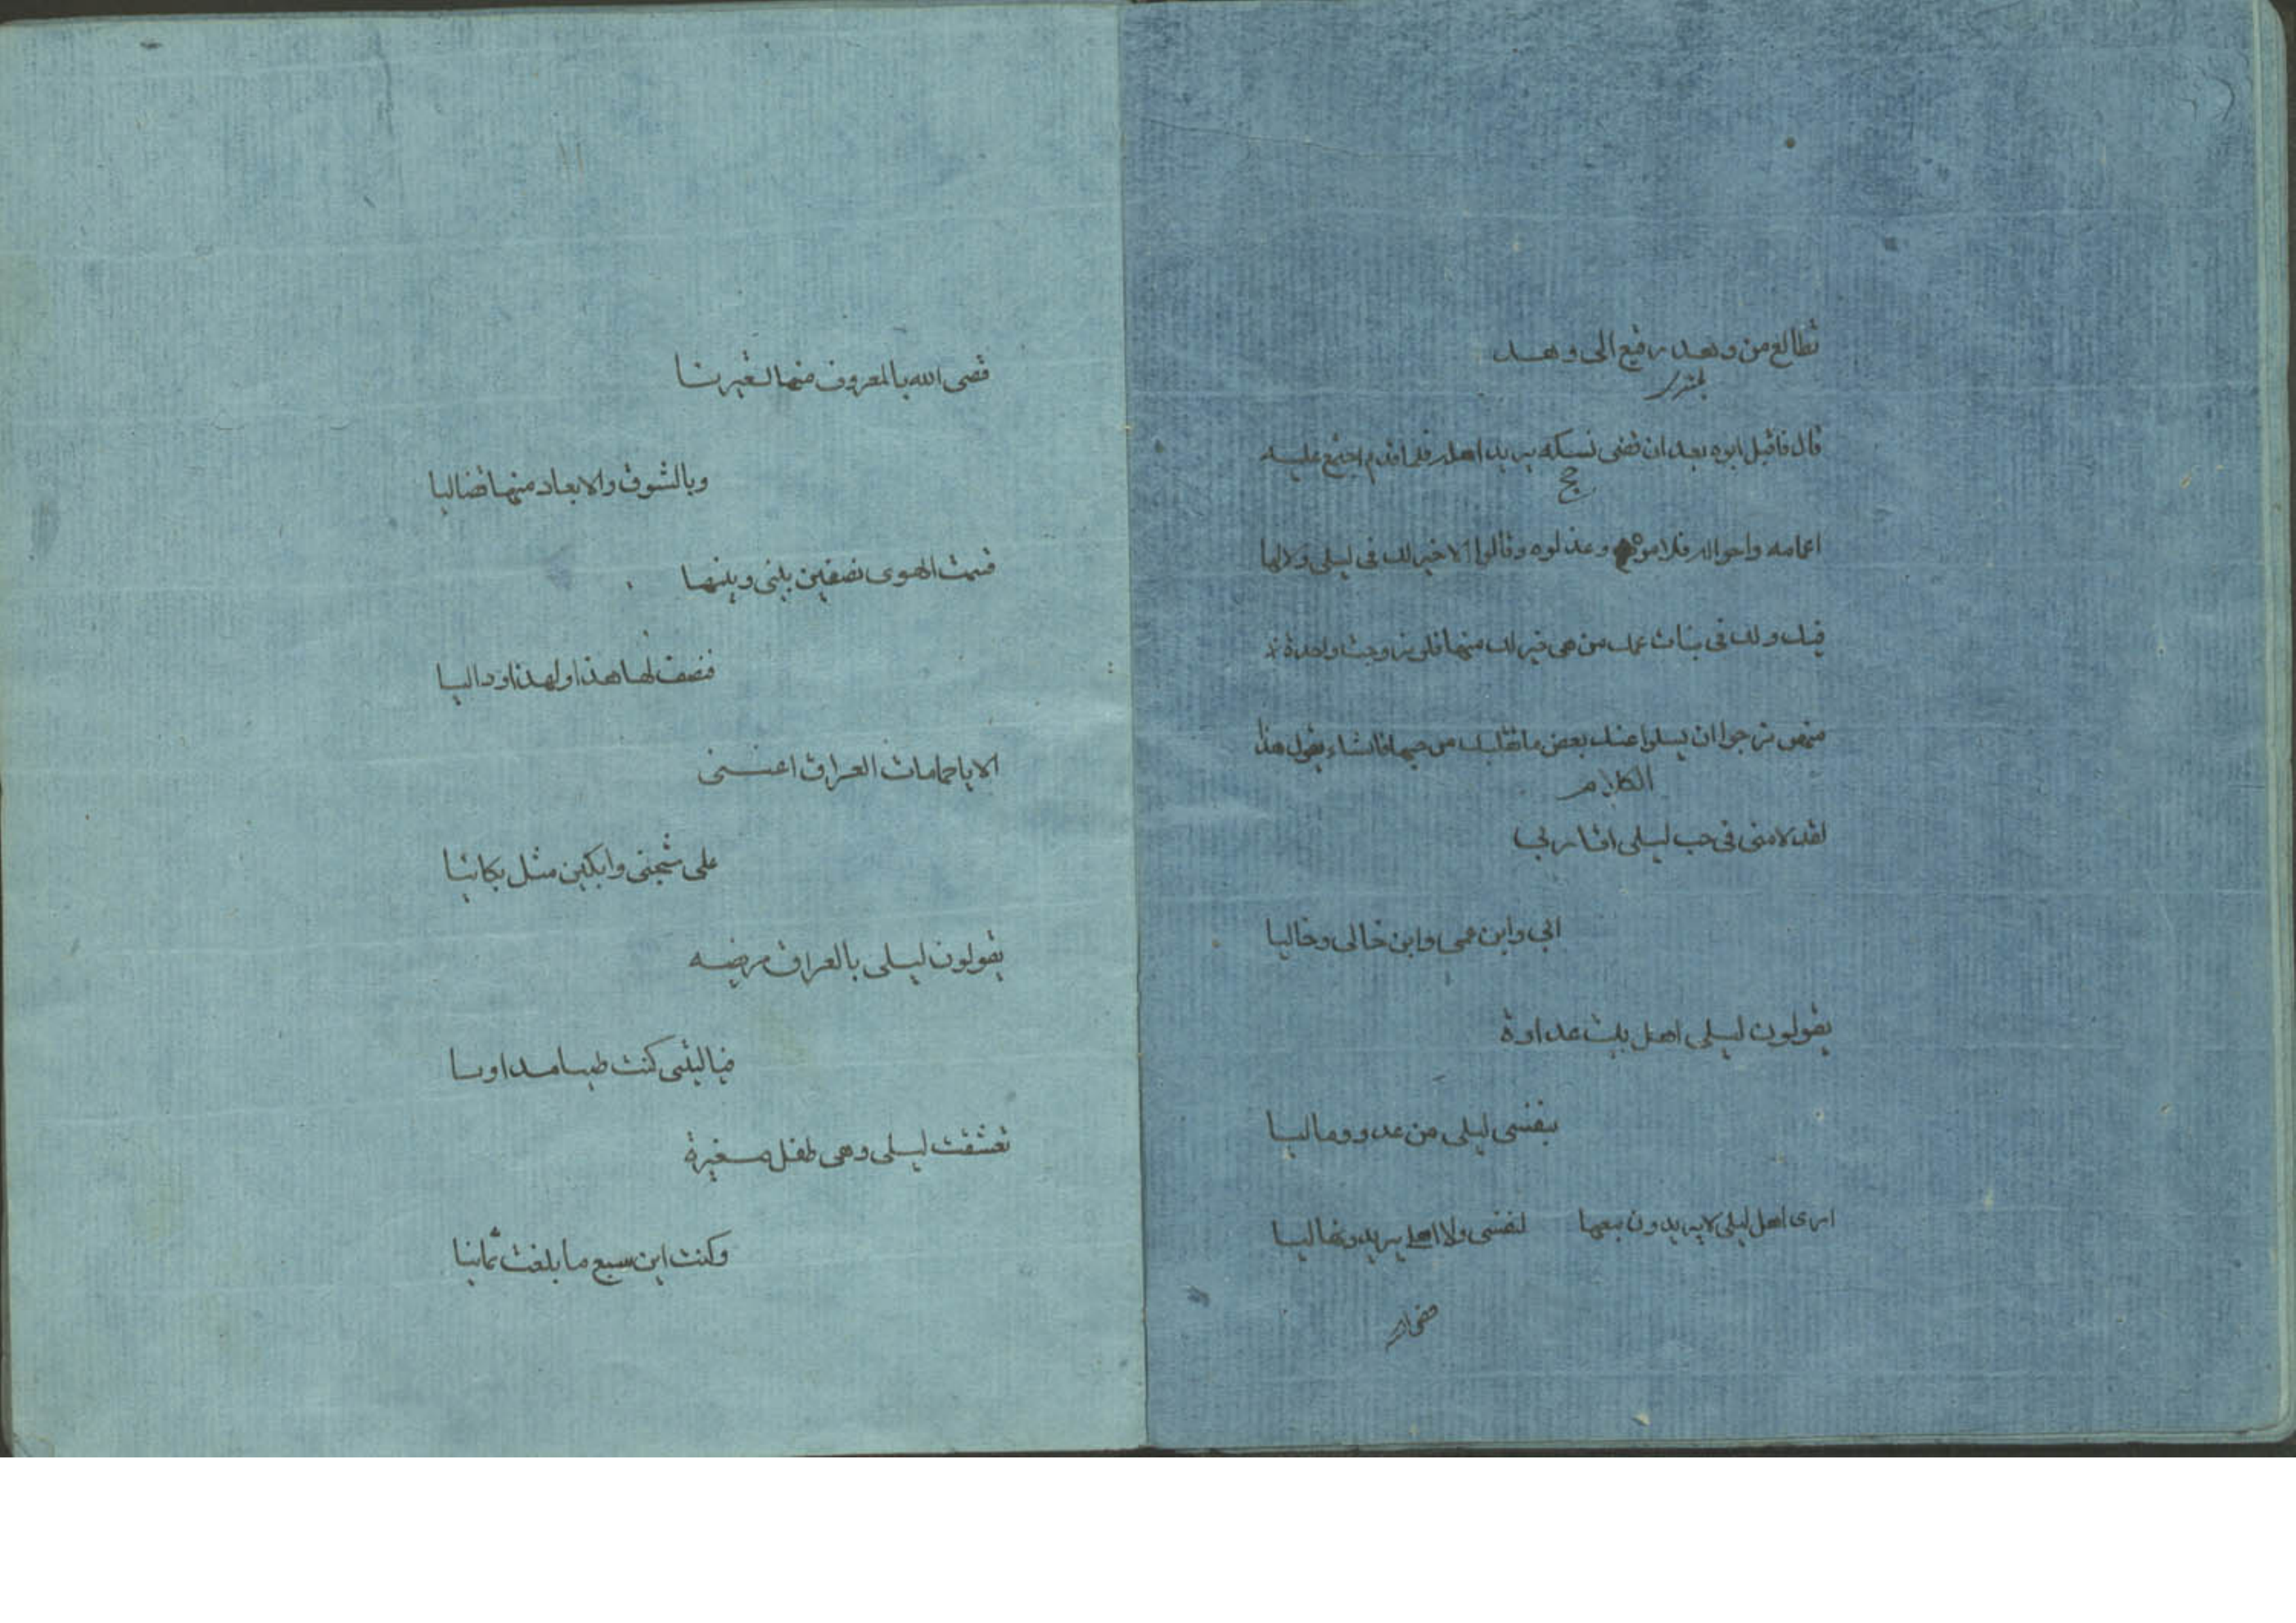 تطالع من وهد رفيع الى وهد
قال فاقبل ابوه بعد ان قضى نسكه يريد اهله فلما قدم اجتمع عليه
حج
اعمامه واخواله فلاموه وعذلوه وقالوا لا خير لك في ليلى ولا لها
فيك ولك في بنات عمك من هي خير لك منها فلو تزوجت واحدة
منهن نرجوا ان يسلوا عنك بعض ما بقلبك من حبها فانشاء يقول هذا
الكلام
لقد لامنى في حب ليلى اقاربي
ابي وابن عمى وابن خالى وخاليا
يقولون ليلى اهل بيت عداوة
بنفسى ليلى من عدو وماليا
ارى اهل ليلى لا يريدون بيعها لنفسى ولا اهلى يريدونها ليا
قضى الله بالمعروف منها لغيرنا
وبالشوق والابعاد منها قضاليا
قسمت الهوى نصفين بيني وبينها
فنصف لها هذا ولهذا وداليا
الا يا حمامات العراق اعننى
على شجنى وابكين مثل بكائيا
يقولون ليلى بالعراق مريضه
فياليتنى كنت طبيبا مداويا
تعشقت ليلى وهى طفل صغيرة
وكنت ابن سبع ما بلغت ثمانيا